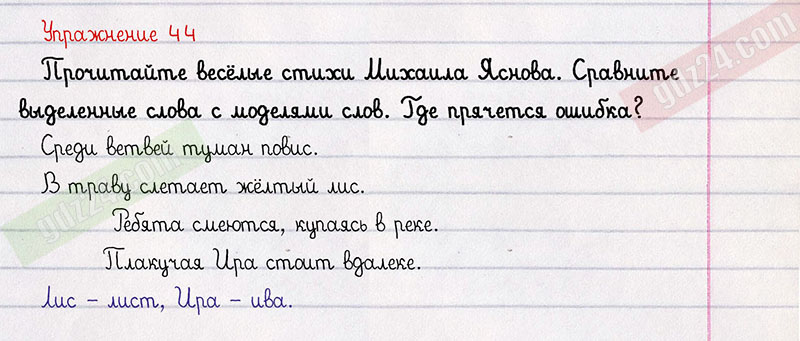 Упражнение 44
Прочитайте весёлые стихи Михаила Яснова. Сравните
выделенные слова с моделями слов. Где прячется ошибка?
Среди ветвей туман повис.
В траву слетает жёлтый лис.
Ребята смеются, купаясь в реке.
Плакучая Ира стоит вдалеке.
Лис – лист, Ира – ива.
gdz24.com
gdz24.com